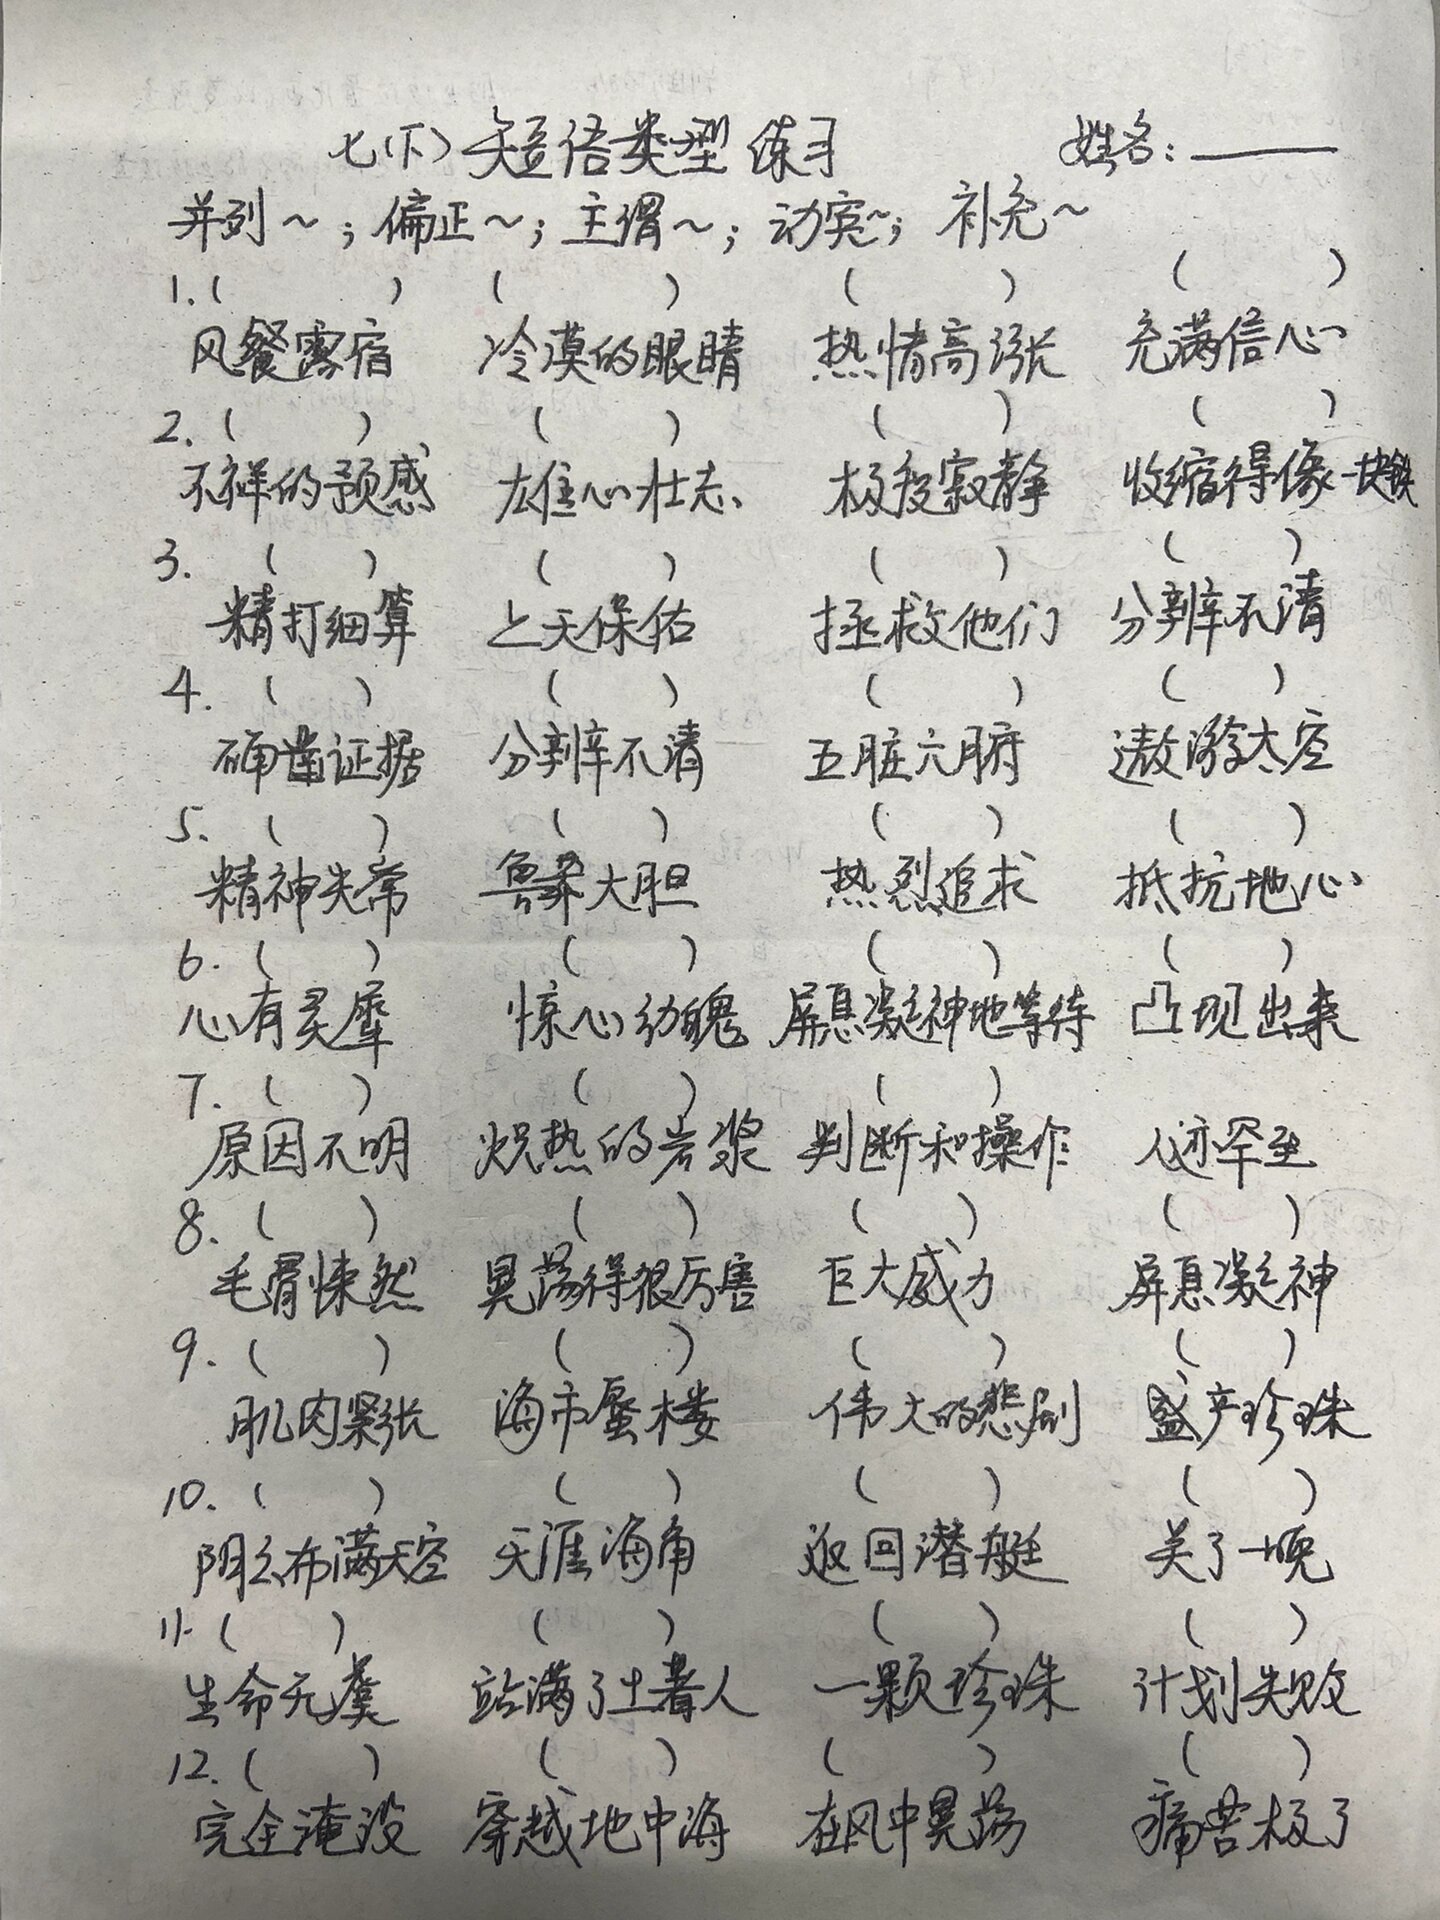 七(下)短语类型练习 姓名:______
并列~;偏正~;主谓~;动宾~;补充~
1.( ) ( ) ( ) ( )
风餐露宿 冷漠的眼睛 热情高涨 充满信心
2.( ) ( ) ( ) ( )
不祥的预感 雄心壮志 极投寂静 收缩得像一块铁
3. ( ) ( ) ( ) ( )
精打细算 上天保佑 拯救他们 分辨不清
4. ( ) ( ) ( ) ( )
确凿证据 分辨不清 五脏六腑 遨游太空
5. ( ) ( ) ( ) ( )
精神失常 鲁莽大胆 热烈追求 抵抗地心
6. ( ) ( ) ( ) ( )
心有灵犀 惊心动魄 屏息凝神地等待 凸现出来
7. ( ) ( ) ( )
原因不明 炽热的岩浆 判断和操作 人迹罕至
8. ( ) ( ) ( ) ( )
毛骨悚然 晃荡得很厉害 巨大威力 屏息凝神
9. ( ) ( ) ( ) ( )
肌肉紧张 海市蜃楼 伟大的悲剧 盛产珍珠
10. ( ) ( ) ( ) ( )
阴云布满天空 天涯海角 返回潜艇 关了一晚
11.( ) ( ) ( ) ( )
生命无虞 站满了土著人 一颗珍珠 计划失败
12.( ) ( ) ( ) ( )
完全淹没 穿越地中海 在风中晃荡 痛苦极了